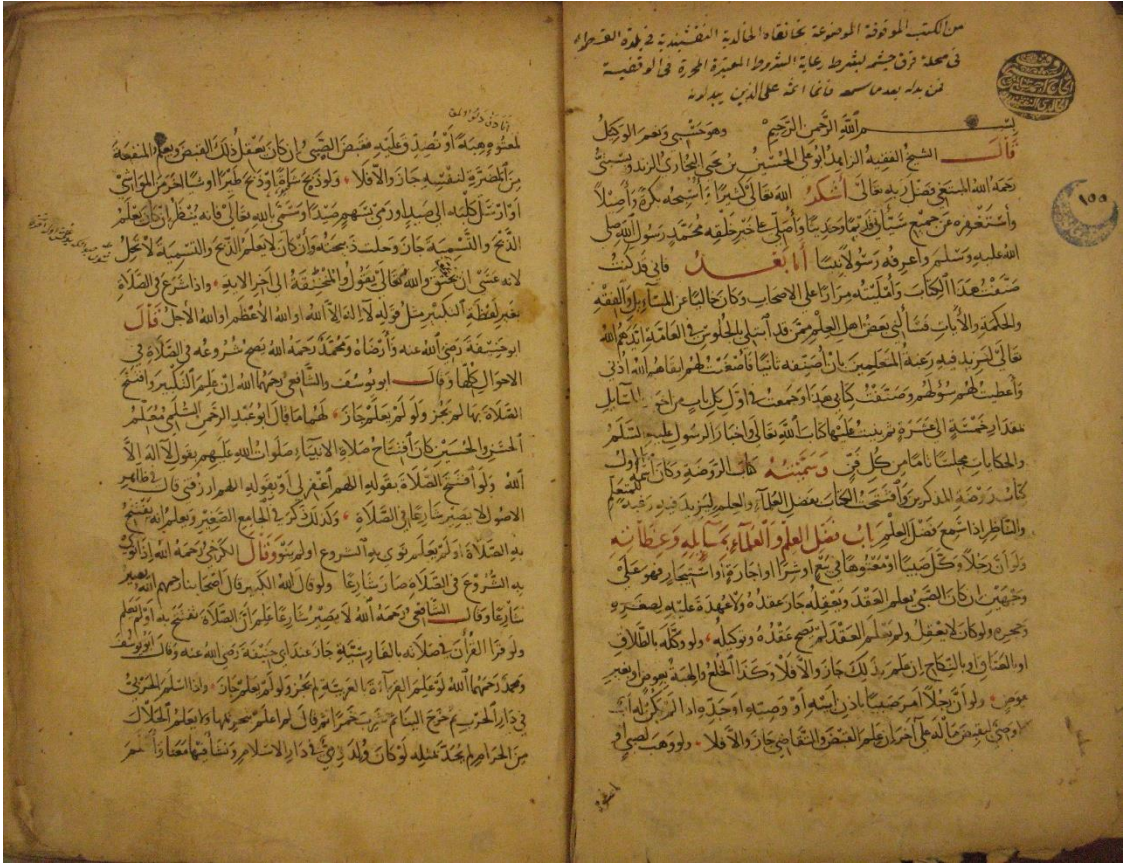 من الكتب الموقوفة الموضوعة بخانقاه الخالدية النقشبندية في بلدة
في محلة قرق چشم بشرط رعاية الشروط المعتبرة المحررة في الوقفية
فمن بدله بعد ما سمعه فانما اثمه على الذين يبدلونه
بسم الله الرحمن الرحيم وهو حسبي ونعم الوكيل
قال الشيخ الفقيه الزاهد ابو علي الحسين بن يحيى البخاري الزندويستي
رحمه الله المستغني بفضل ربه تعالى أشكر الله تعالى كثيرا وأسبحه بكرة وأصيلا
وأستغفره من جميع قديما وحديثا وأصلي على خير خلقه محمد رسول الله صلى
الله عليه وسلم وأعرفه رسولا نبيا أما بعد فاني قد كنت
صنفت هذا الكتاب وأمليته مرارا على الاصحاب وكان خاليا عن المسائل والفقه
والحكمة والأبات فسألني بعض اهل العلم ممن قد ابتلي بالجلوس في العامة ايدهم الله
تعالى ليزيد فيه رغبة المتعلمين بان أصنفه ثانيا فأصغت لهم ابقاهم الله أذني
وأعطيت لهم سؤلهم وصنفت كتابي هذا وجمعت في اول كل باب من المسايل
مقدار خمسة الى عشرة ثم بنيت عليها كتاب الله تعالى واخبار الرسول عليه السلم
والحكايات مجلسا تاما من كل فن وسميته كتاب الروضة وكان اسمه اولا
كتاب روضة المذكرين وافتتحت الكتاب بفضل العلماء والعلم ليزيد فيه رغبة للمتعلم
والناظر اذا سمع فضل العلم باب فضل العلم والعلماء بمسايله وعظاته
ولو أن رجلا وكل صبيا او معتوها في بيع او شرا او اجارة او استيجار فهو على
وجهين ان كان الصبي يعلم العقد ويعقله جاز عقده ولا عهدة عليه لصغره
وحجره ولو كان لا يعقل ولم يعلم العقد لم يصح عقده وتوكيله ولو وكله بالطلاق
او العتاق او بالنكاح ان علم ذلك جاز والا فلا وكذا الخلع والهبة بعوض او بغير
عوض ولو أن رجلا امر صبيا باذن ابيه او وصيه او جده اذا لم يكن له اب
او وصي بقبض ماله على آخر ان علم القبض والتقاضي جاز والا فلا ولو وهب لصبي او
١٥٥
لمعتوه هبة أو تصدق عليه فقبض الصبي ان كان يعقل ذلك القبض ويعلم المنفعة
من المضرة لنفسه جاز والا فلا ولو ذبح شاة او ذبح طيرا او شيا آخر من المواشي
او ارسل كلبه الى صيد او رمى بسهم صيدا وسمى بالله تعالى فانه ينظر ان كان يعلم
الذبح والتسمية جاز وحلت ذبيحته وان كان لا يعلم الذبح والتسمية لا تحل
لانه عسى ان يختنق والله تعالى يقول والمنخنقة الى آخر الاية واذا شرع في الصلاة
بغير لفظة التكبير مثل قوله لا إله إلا الله او الله الأعظم او الله الأجل قال
ابو حنيفة رضي الله عنه وأرضاه ومحمد رحمه الله يصح شروعه في الصلاة في
الاحوال كلها وقال ابو يوسف والشافعي رحمهما الله ان علم التكبير وافتتح
الصلاة بها لم يجز ولو لم يعلم جاز لهما ما قال ابو عبد الرحمن السلمي معلم
الحسن والحسين كان افتتاح صلاة الانبياء صلوات الله عليهم بقول لا اله الا
الله ولو افتتح الصلاة بقوله اللهم اغفر لي او بقوله اللهم ارزقني قال في ظاهر
الاصول لا يصير شارعا في الصلاة وكذلك ذكر في الجامع الصغير ويعلم انه يفتتح
به الصلاة او لم يعلم نوى به الشروع او لم ينو وقال الكرخي رحمه الله اذا نوى
به الشروع في الصلاة صار شارعا ولو قال الله الكبير قال اصحابنا رحمهم الله يصير
شارعا وقال الشافعي رحمه الله لا يصير شارعا علم أن الصلاة تفتتح به او لم يعلم
ولو قرا القرأن في صلاته بالفارسية جاز عند ابي حنيفة رضي الله عنه وقال ابو يوسف
ومحمد رحمهما الله لو علم القراءة بالعربية لم يجز ولو لم يعلم جاز ولو اسلم الحربي
في دار الحرب ثم خرج الينا ثم شرب خمرا ثم قال لم اعلم بتحريمها ولا يعلم الحلال
من الحرام لم يحد بمثله لو كان ولد ذمي في دار الاسلام ونشأ فيها معنا واسلم